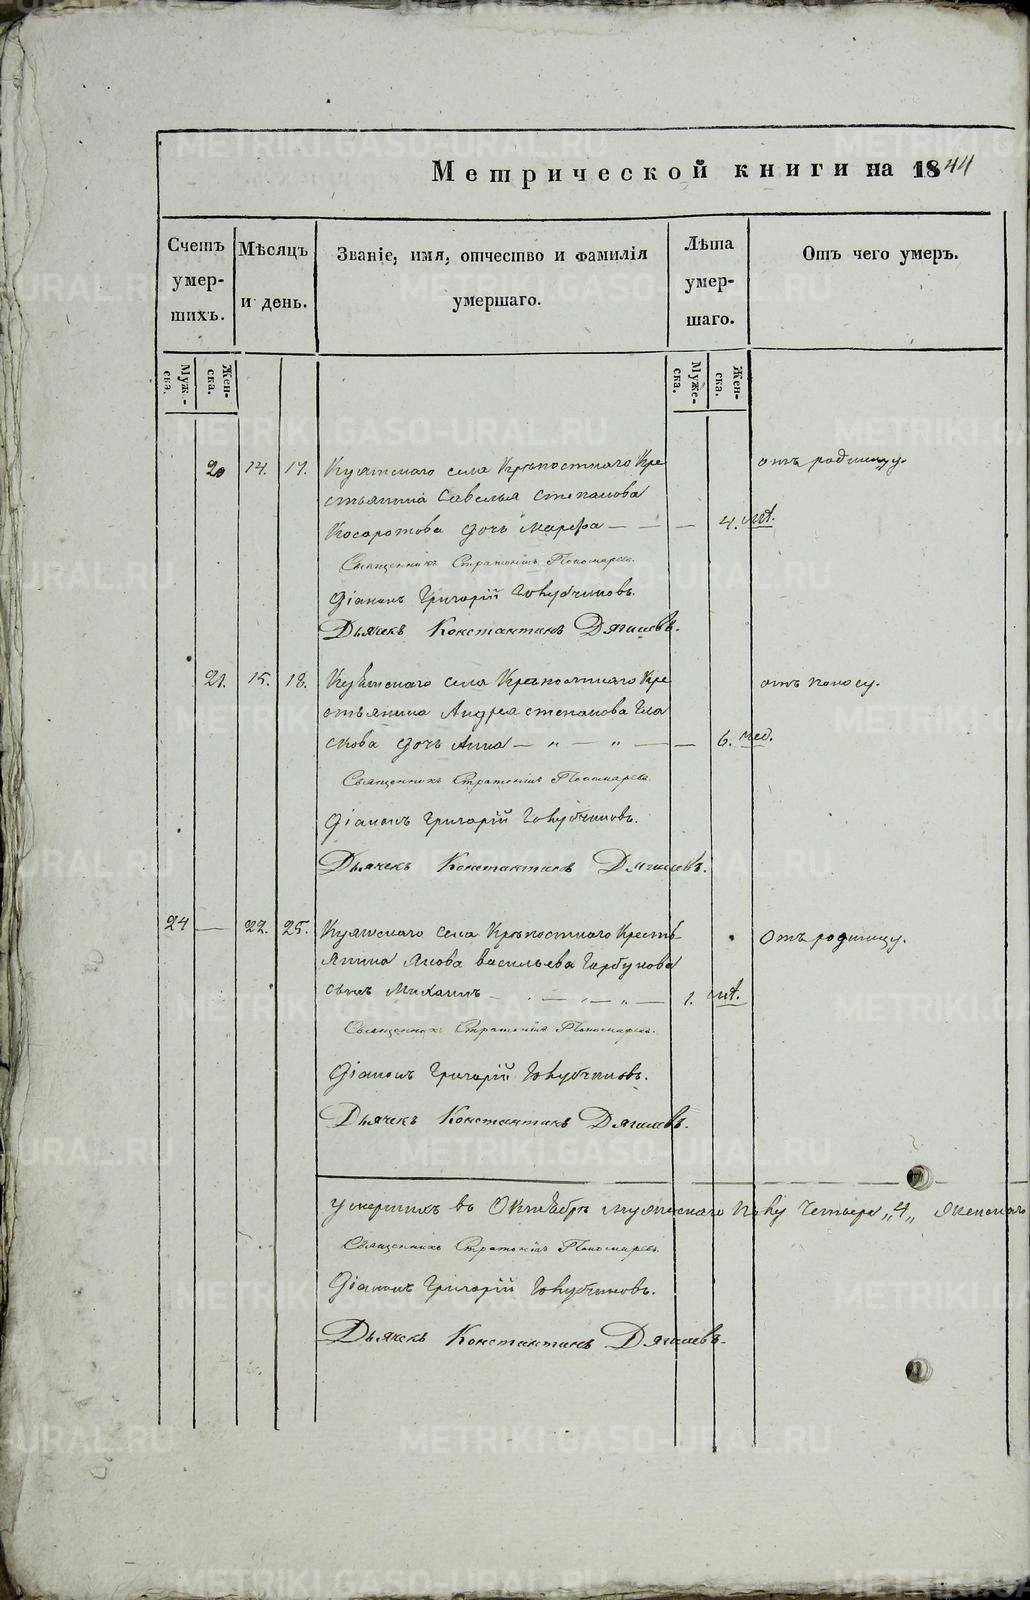 Метрической книги на 1844
Счетъ умер-шихъ.
Мѣсяцъ и день.
Званіе, имя, отчество и фамилія умершаго.
Лѣта умер-шаго.
Отъ чего умеръ.
Муж-ска.
Жен-ска.
Муже-ска.
Жен-ска.
20 14. 17. села Крѣпостнаго Кре отъ родимцу.
стьянина Савелья Степанова
дочь Марѳа — — — 4. лѣт.
Священникъ Пономаревъ.
Діаконъ Григорій Голубчиковъ.
Дьячекъ Константинъ Дягилевъ.
21. 15. 18. села Крѣпостнаго Кре отъ поносу.
стьянина Андрея Степанова
скова дочь Анна — „ — „ — — 6. нед.
Священникъ Пономаревъ.
Діаконъ Григорій Голубчиковъ.
Дьячекъ Константинъ Дягилевъ.
24 — 22. 25. села Крѣпостнаго Кресть Отъ родимцу.
янина Якова Васильева Горбунова
сынъ Михаилъ — — „ — 1. лѣт.
Священникъ Пономаревъ.
Діаконъ Григорій Голубчиковъ.
Дьячекъ Константинъ Дягилевъ.
Умершихъ въ Октябрѣ мужескаго полу четверо „4„ женскаго
Священникъ Пономаревъ.
Діаконъ Григорій Голубчиковъ.
Дьячекъ Константинъ Дягилевъ.
METRIKI.GASO-URAL.RU